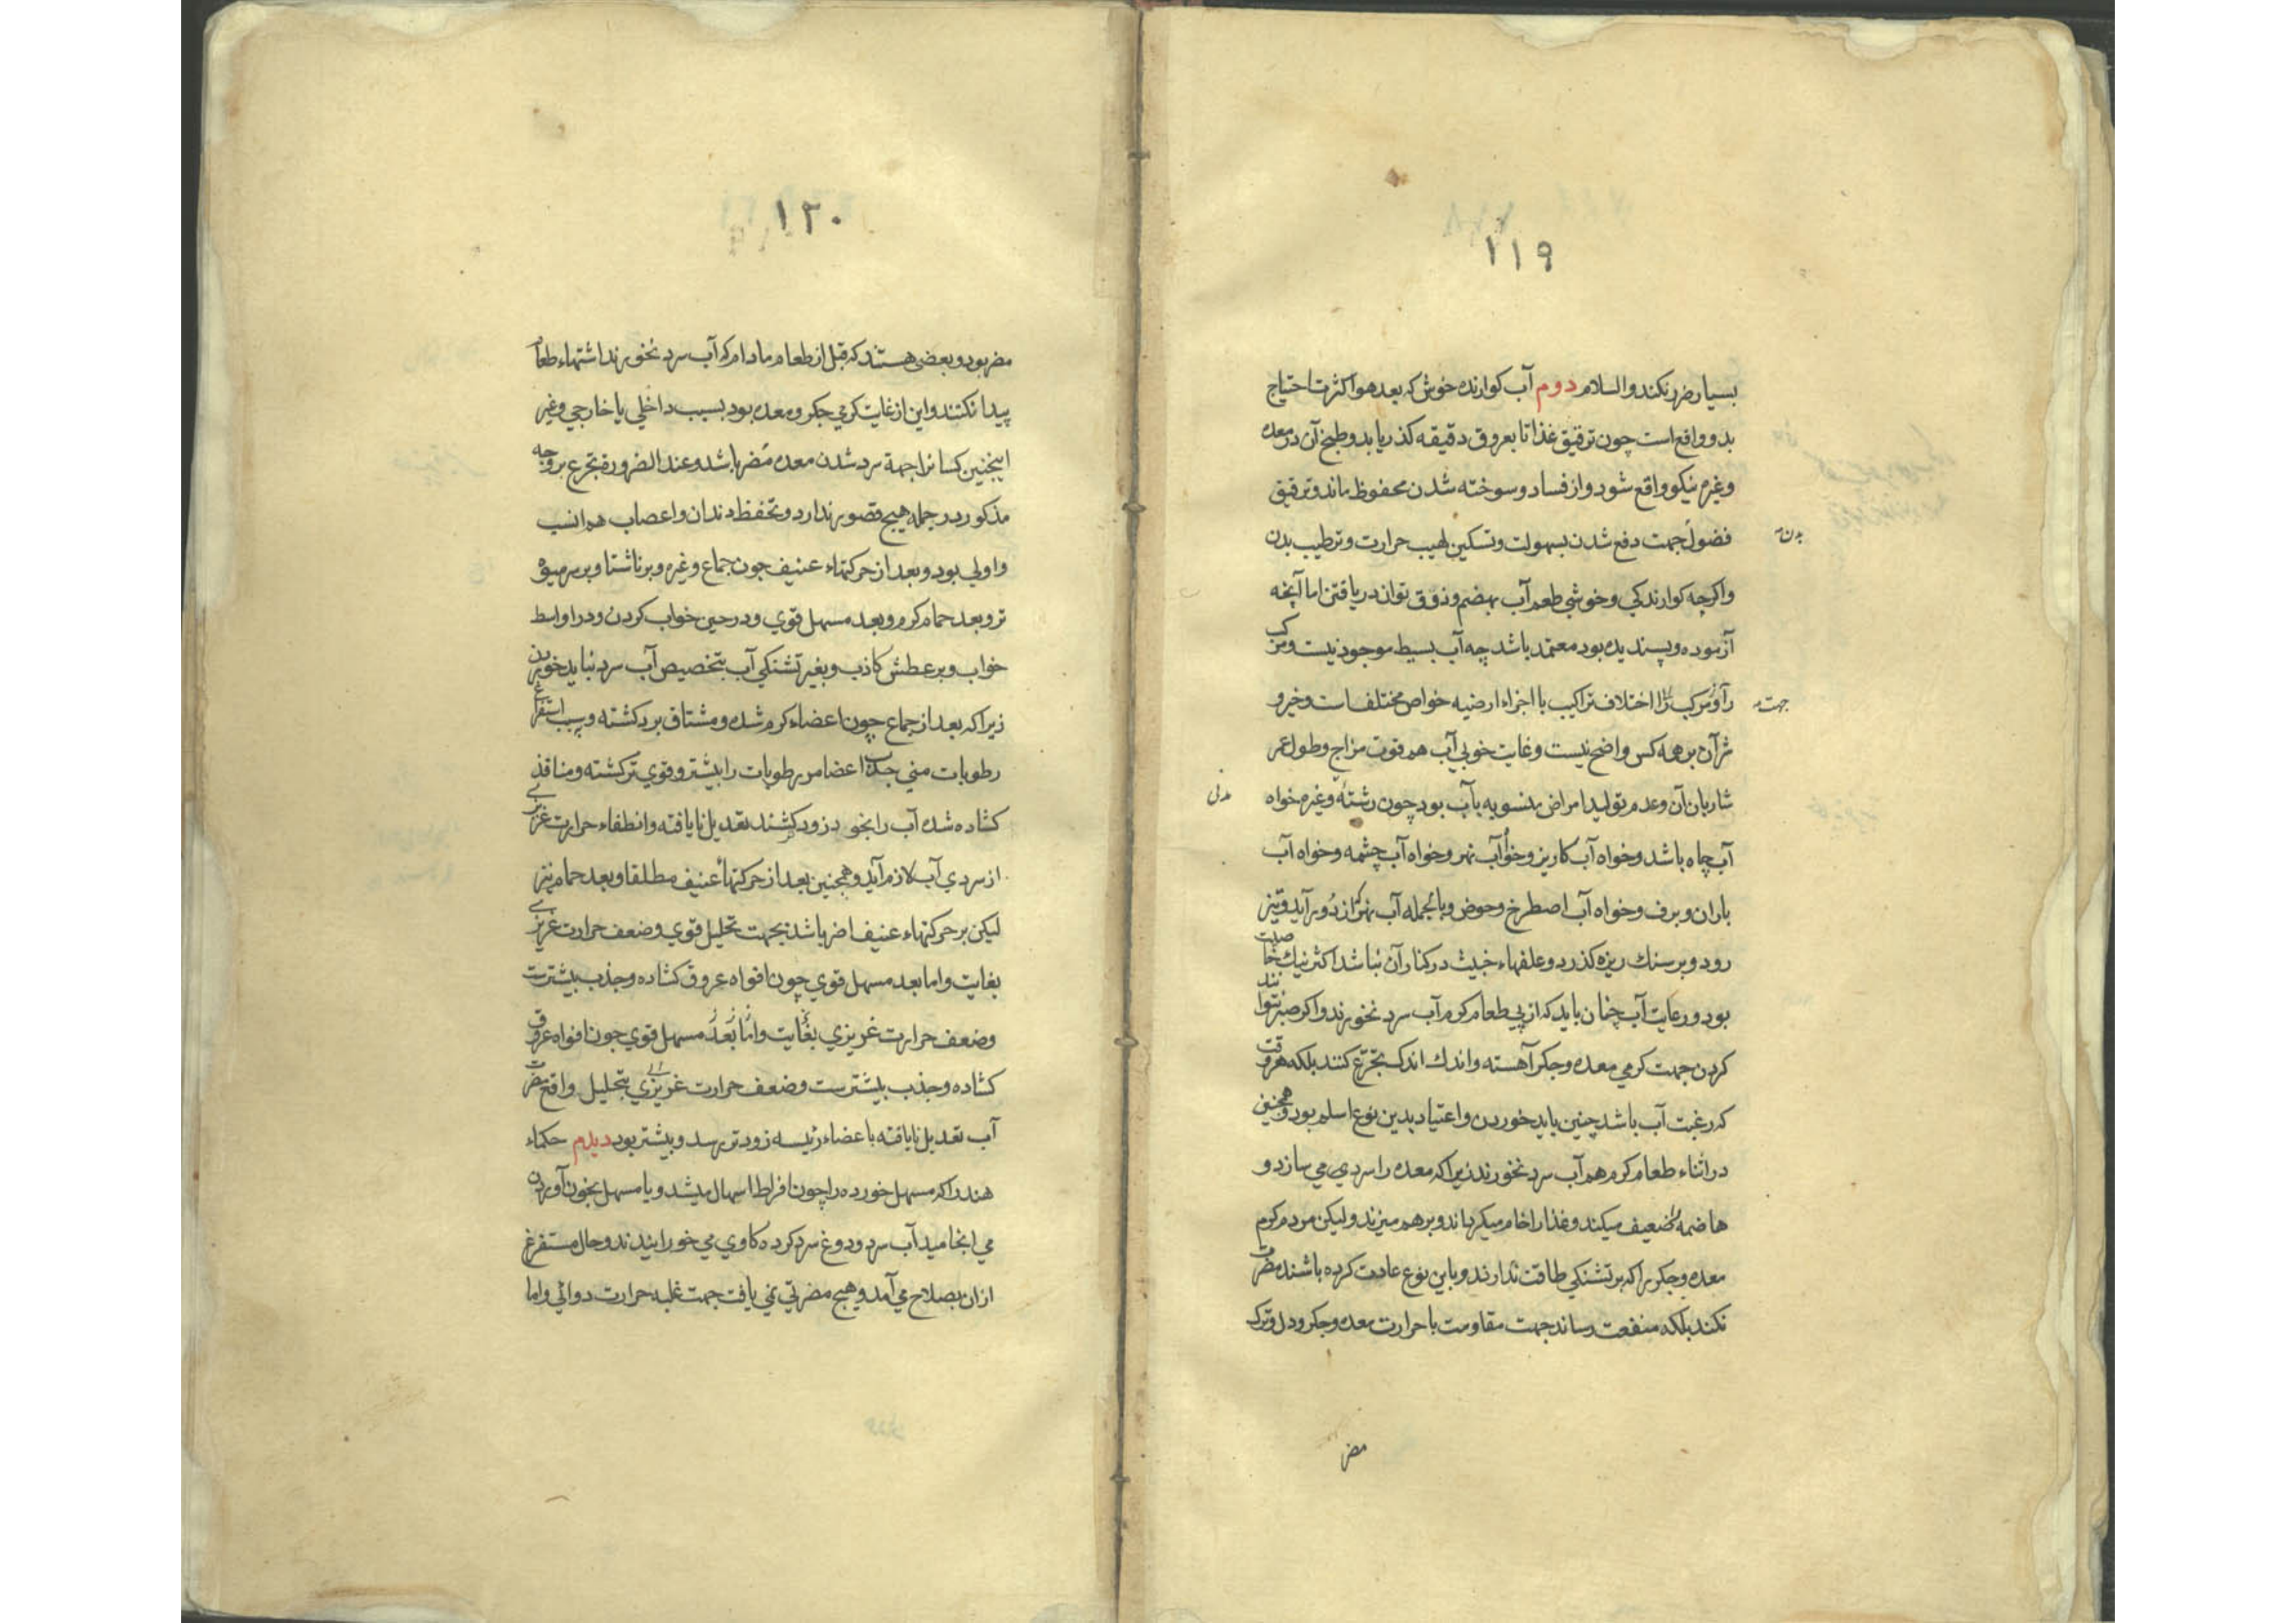 ۱۱۹
بسیار ضرر نکند والسلام دوم آب کوارنده خوش که بعد هوا کثرت احتیاج
بدو واقع است چون ترقیق غذا تا بعروق دقیقه کذر یابد و طبخ آن در معده
وغیره نیکو واقع شود و از فساد و سوخته شدن محفوظ ماند و ترقیق
فضول جهت دفع شدن بسهولت و تسکین لهیب حرارت و ترطیب بدن
بدن
واکرچه کوارندکی و خوشی طعم آب بهضم و ذوق توان دریافتن اما آنچه
آزموده و پسندیده بود معتمد باشد چه آب بسیط موجود نیست و مرکب
را و مرکب را اختلاف تراکیب با اجزاء ارضیه خواص مختلف است و خیر و
جهت
شر آن بر همه کس واضح نیست و غایت خوبی آب هم قوت مزاج و طول عمر
شاربان آن و عدم تولید امراض منسوبه بآب بود چون رشته وغیره خواه
مدنی
آب چاه باشد و خواه آب کاریز و خواه آب نهر و خواه آب چشمه و خواه آب
باران و برف و خواه آب اصطرخ و حوض و بالجمله آب نهر که از دور آید و تیز
رود و بر سنك ریزه کذرد و علفهاء خبیث در کنار آن نباشد اکثر نیك خاصیت
بود و رعایت آب چنان باید که از پی طعام کرم آب سرد نخورند و اکر صبر نتوانند
کردن جهت کرمی معده و جکر آهسته و اندك اندك بتجرّع کنند بلکه هر وقت
که رغبت آب باشد چنین باید خوردن و اعتیاد بدین نوع اسلم بود و همچنین
در اثناء طعام کرم هم آب سرد نخورند زیرا که معده را سردی می سازد و
هاضمه را ضعیف میکند و غذا را خام میکرداند و بر هم میزند ولیکن مردم کرم
معده و جکر را که بر تشنکی طاقت ندارند و باین نوع عادت کرده باشند مضرت
نکند بلکه منفعت رساند جهت مقاومت با حرارت معده و جکر و دل و ترک
مضر
۱۲۰
مضر بود و بعضی هستند که قبل از طعام مادام که آب سرد نخورند اشتهاء طعام
پیدا نکنند و این از غایت کرمی جکر و معده بود بسبب داخلی یا خارجی وغیر
اینچنین کسانرا جهة سرد شدن معده مضر باشد و عند الضرورة تجرع بر وجه
مذکور در جمله هیچ قصور ندارد و تحفظ دندان و اعصاب هم انسب
و اولی بود و بعد از حرکتهاء عنیف چون جماع وغیره و بر ناشتا و بر سر میوه
تر و بعد حمام کرم و بعد مسهل قوی و در حین خواب کردن و در اواسط
خواب و بر عطش کاذب و بغیر تشنکی آب بتخصیص آب سرد نباید خوردن
زیرا که بعد از جماع چون اعضاء کرم شده و مشتاق برد کشته و بسبب استفراغ
رطوبات منی جذب اعضا مر رطوبات را بیشتر و قوی تر کشته و منافذ
کشاده شده آب را بخود زود کشند تعدیل نایافته و انطفاء حرارت غریزی
از سردی آب لازم آید و همچنین بعد از حرکتهاء عنیف مطلقا و بعد حمام نیز
لیکن بر حرکتهاء عنیف اضر باشد بجهت تحلیل قوی و ضعف حرارت غریزی
بغایت و اما بعد مسهل قوی چون افواه عروق کشاده و جذب بیشترست
وضعف حرارت غریزی بغایت و اما بعد مسهل قوی چون افواه عروق
کشاده و جذب بیشترست وضعف حرارت غریزی بتحلیل واقع مضرت
آب تعدیل نایافته باعضاء رئیسه زودتر رسد و بیشتر بود دیدم حکماء
هند را که مسهل خورده را چون افراط اسهال میشد و یا مسهل بخون آوردن
می انجامید آب سرد و دوغ سرد کرده کاوی می خورانیدند و حال مستفرغ
از ان بصلاح می آمد و هیچ مضرتی نمی یافت جهت غلبه حرارت دوائی و اما